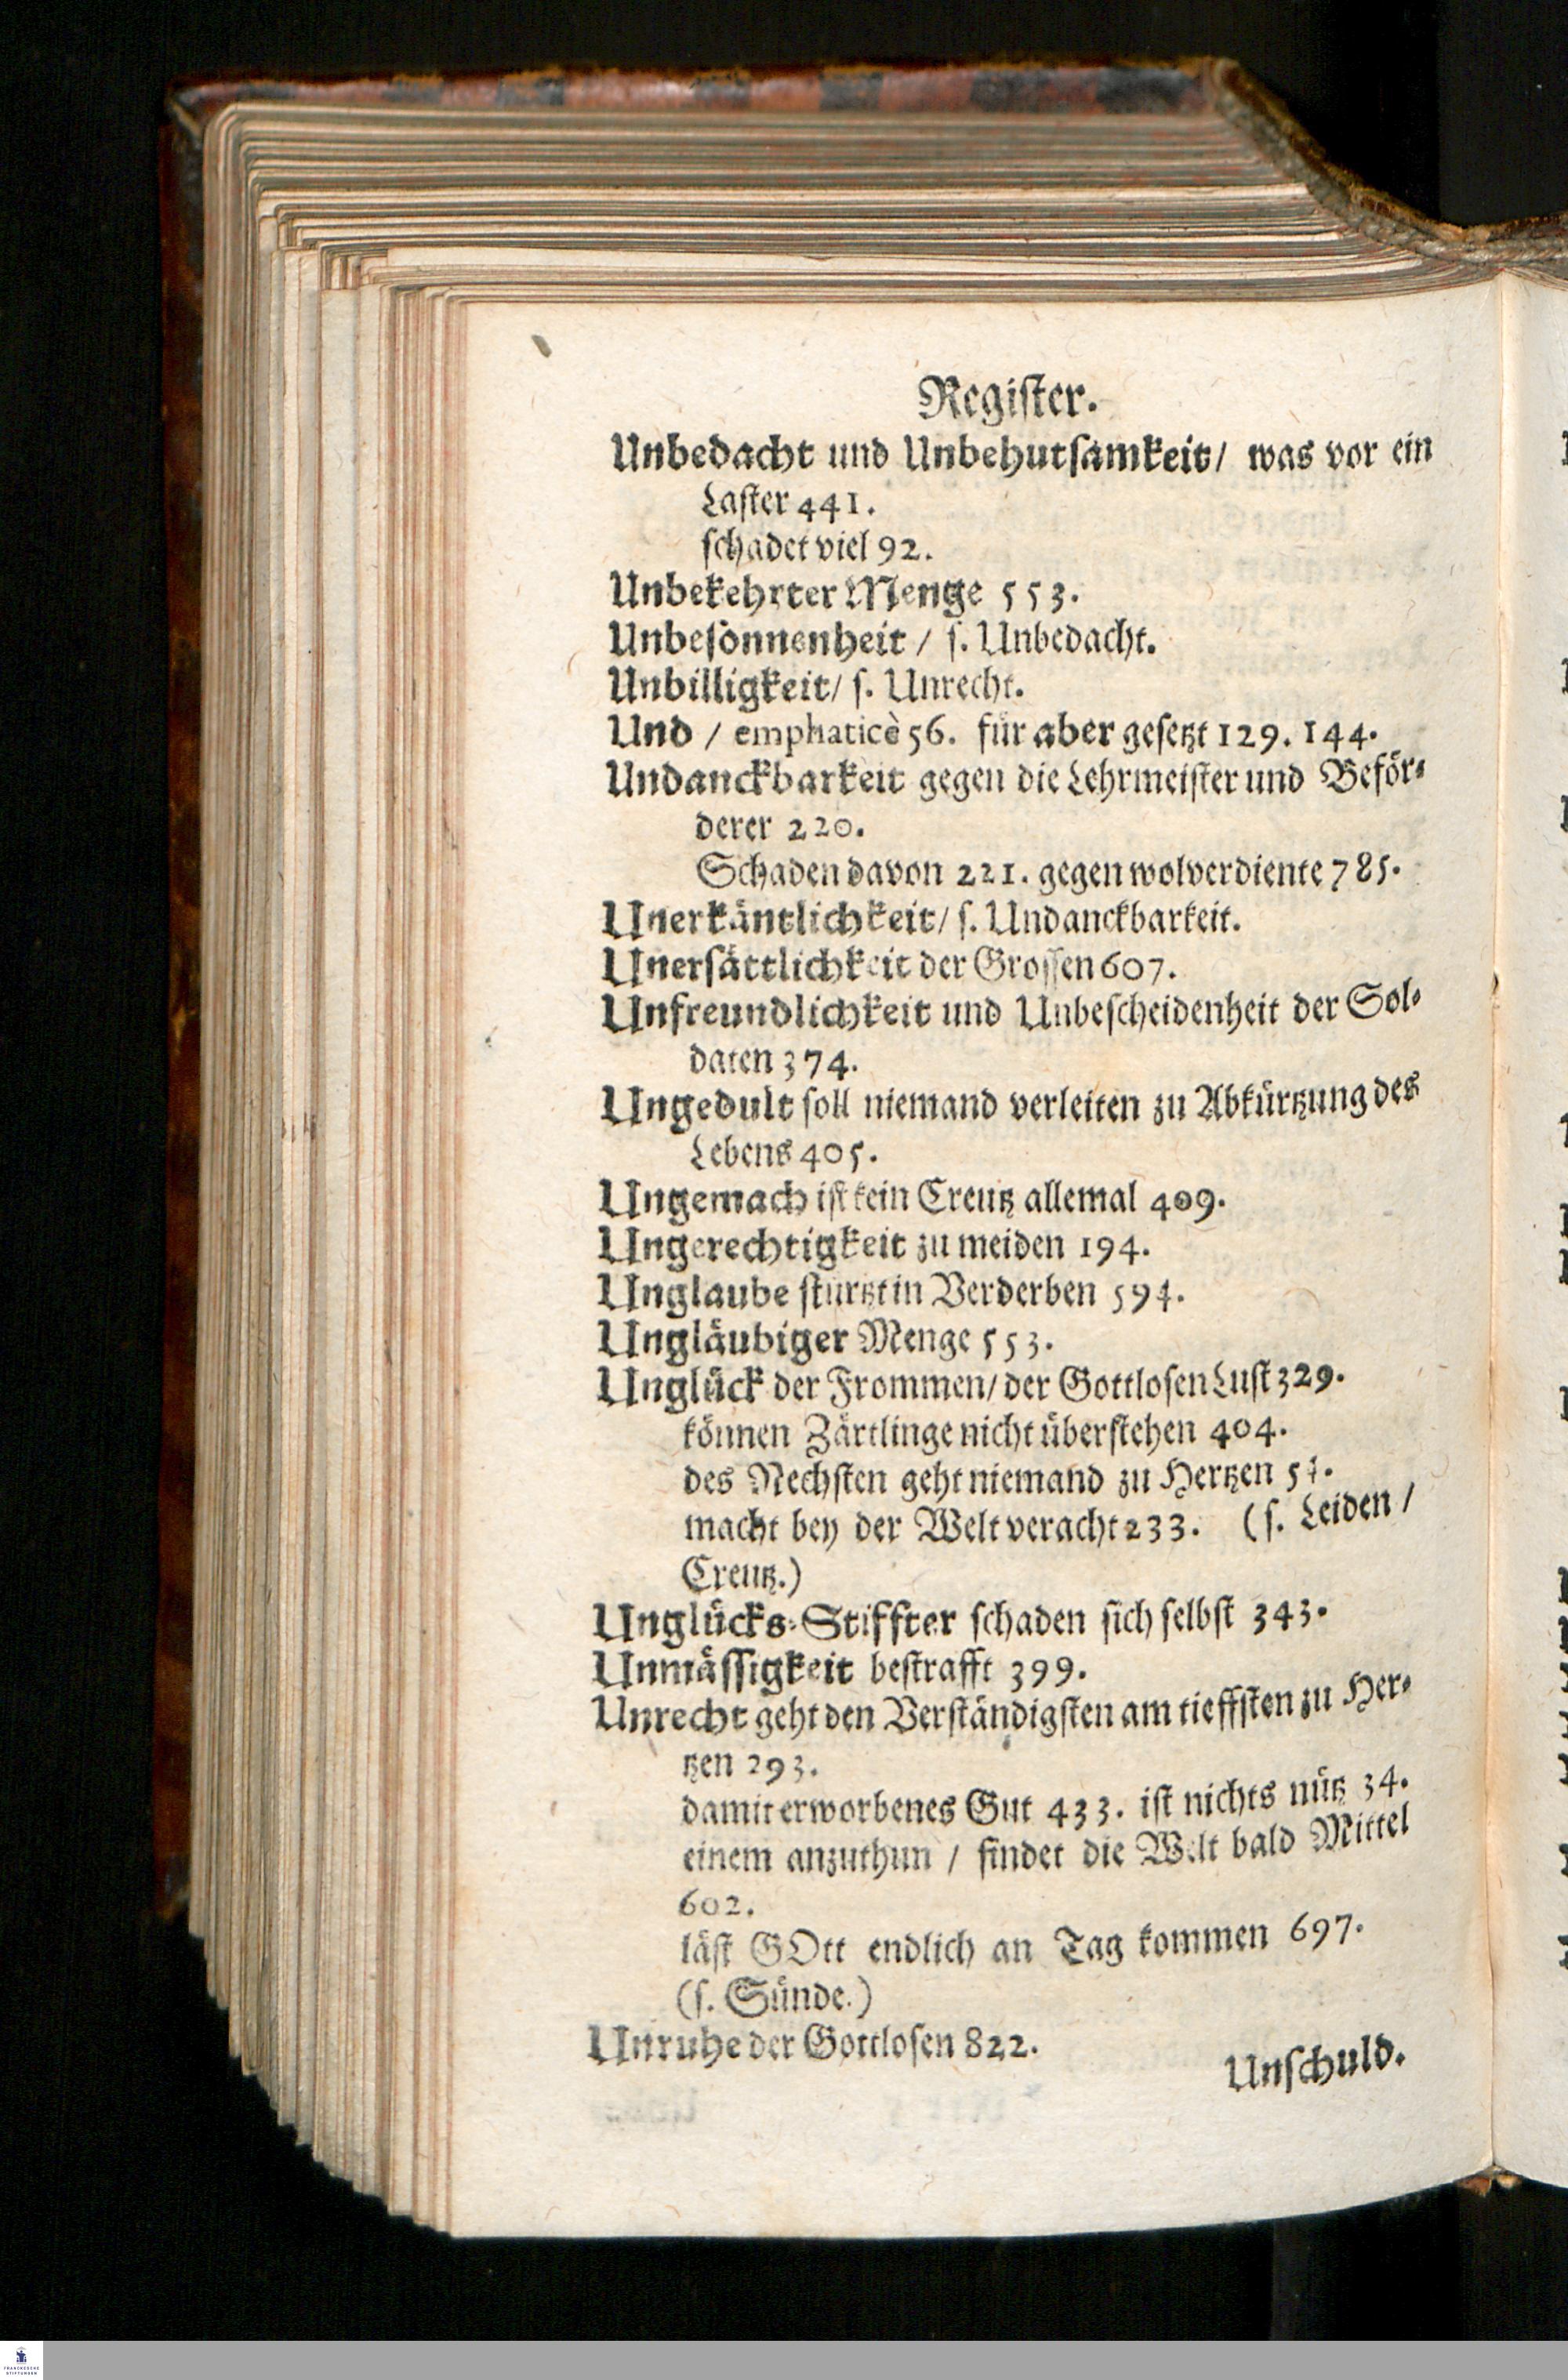 Register.
Unbedacht und Unbehutsamkeit/ was vor ein
Laster 441.
schadet viel 92.
Unbekehrter Mentge 553.
Unbesonnenheit / s. Unbedacht.
Unbilligkeit/ s. Unrecht.
Und / emphaticè 56. für aber gesetzt 129. 144.
Undanckbarkeit gegen die Lehrmeister und Beför-
derer 220.
Schaden davon 221. gegen wolverdiente 785.
Unerkäntlichkeit/ s. Undanckbarkeit.
Unersättlichkeit der Grossen 607.
Unfreundlichkeit und Unbescheidenheit der Sol-
daten 374.
Ungedult soll niemand verleiten zu Abkürtzung des
Lebens 405.
Ungemach ist kein Creutz allemal 409.
Ungerechtigkeit zu meiden 194.
Unglaube stürtzt in Verderben 594.
Ungläubiger Menge 553.
Unglück der Frommen/ der Gottlosen Lust 329.
können Zärtlinge nicht überstehen 404.
des Nechsten geht niemand zu Hertzen
macht bey der Welt veracht 233. (s. Leiden /
Creutz.)
Unglücks-Stiffter schaden sich selbst 343.
Unmässigkeit bestrafft 399.
Unrecht geht den Verständigsten am tieffsten zu Her-
tzen 293.
damit erworbenes Gut 433. ist nichts nütz 34.
einem anzuthun / findet die Welt bald Mittel
602.
läst GOtt endlich an Tag kommen 697.
(s. Sünde.)
Unruhe der Gottlosen 822.
Unschuld.
FRANCKESCHE
STIFTUNGEN